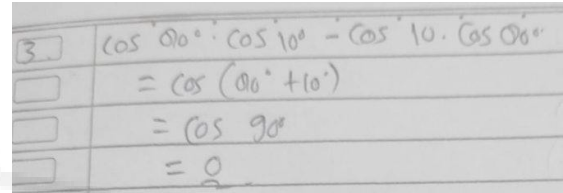 3. cos 80° . cos 10° - cos 10 . cos 80°
= cos (80° + 10°)
= cos 90°
= 0